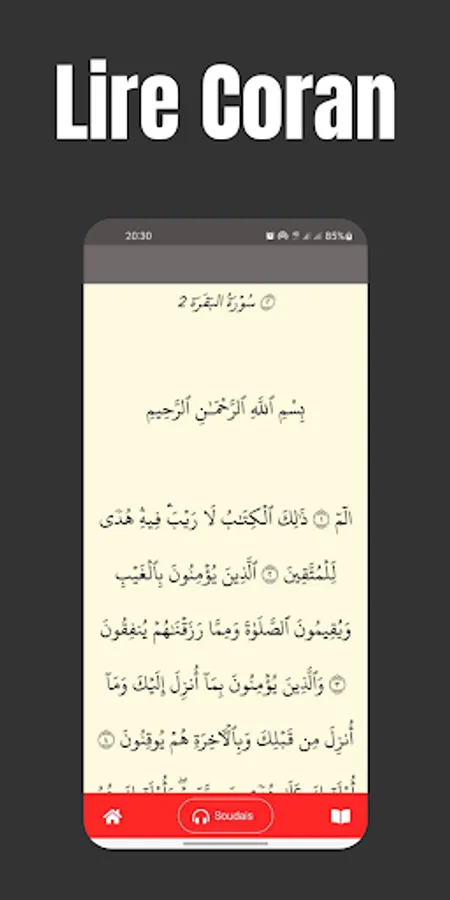 Lire Coran
20:30
85%
2 سُورَةُ البَقَرَة ۝٢
بِسْمِ ٱللَّهِ ٱلرَّحْمَـٰنِ ٱلرَّحِيمِ
الٓمٓ ۝١ ذَٰلِكَ ٱلْكِتَـٰبُ لَا رَيْبَ ۛ فِيهِ ۛ هُدًى
لِّلْمُتَّقِينَ ۝٢ ٱلَّذِينَ يُؤْمِنُونَ بِٱلْغَيْبِ
وَيُقِيمُونَ ٱلصَّلَوٰةَ وَمِمَّا رَزَقْنَـٰهُمْ يُنفِقُونَ
۝٣ وَٱلَّذِينَ يُؤْمِنُونَ بِمَآ أُنزِلَ إِلَيْكَ وَمَآ
أُنزِلَ مِن قَبْلِكَ وَبِٱلْـَٔاخِرَةِ هُمْ يُوقِنُونَ ۝٤
Soudais